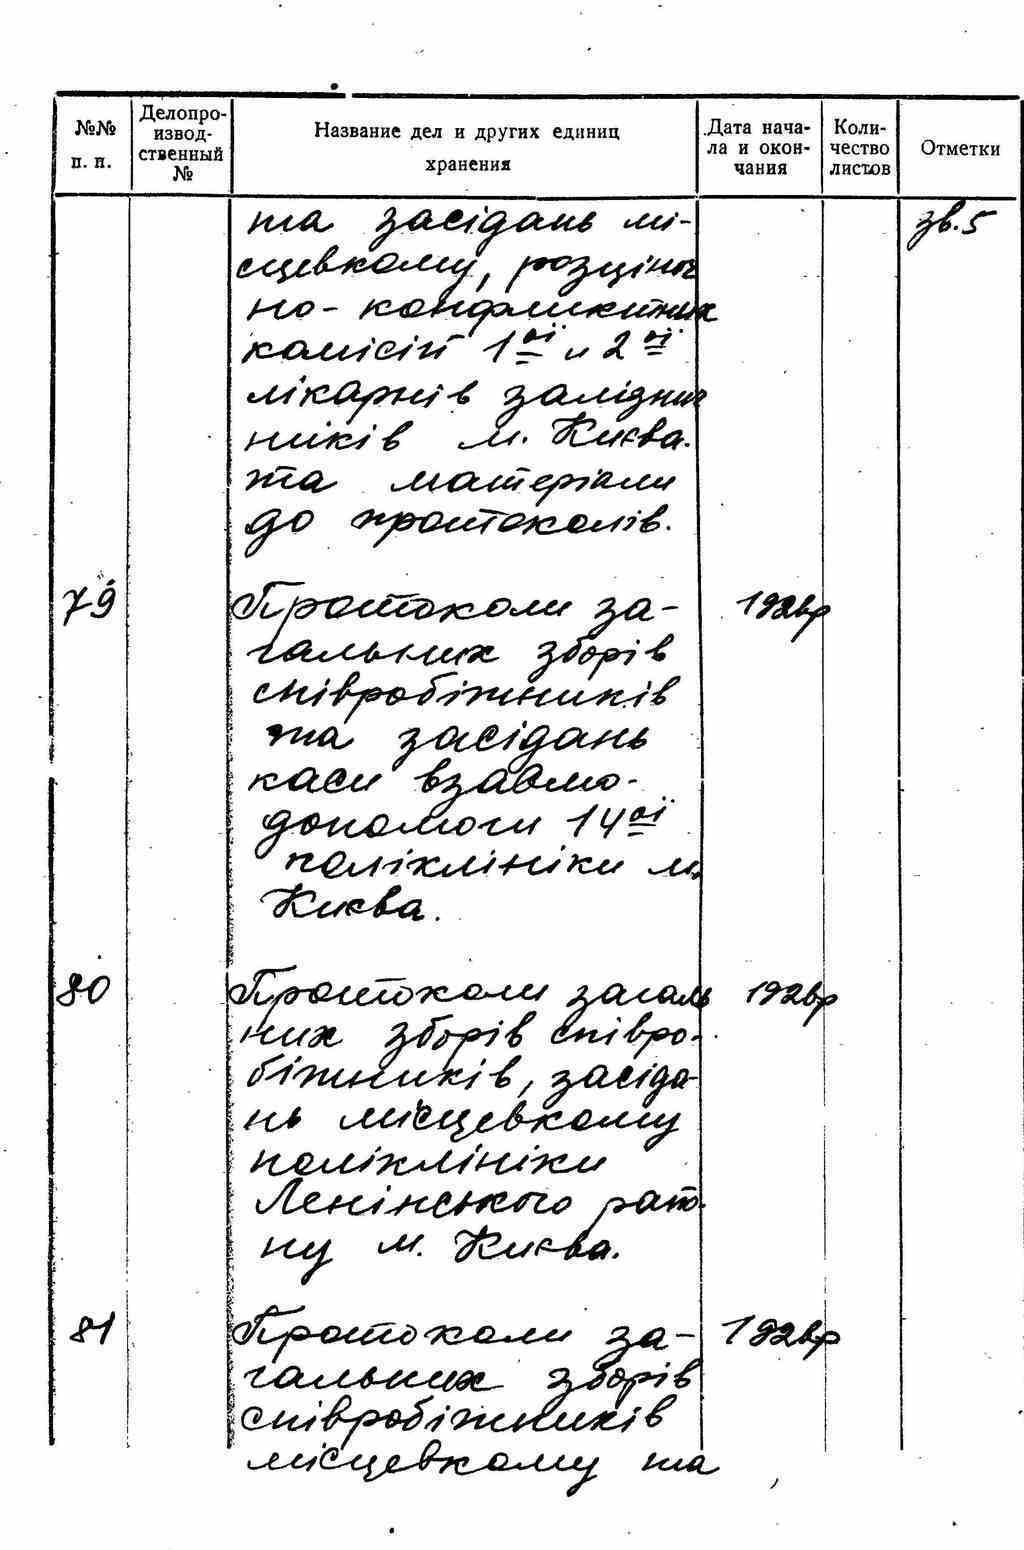 №№ п. п.
Делопро-
извод-
ственный
№
Название дел и других единиц
хранения
Дата нача-
ла и окон-
чания
Коли-
чество
листов
Отметки
та засідань мі- зв. 5
сцевкому, розціноч
но-конфликтних
комісій 1ої и 2ої
лікарнів залізнич
ників м. Києва.
та матеріали
до протоколів.
79 Протоколи за-
гальних зборів
співробітників
та засідань
каси взаємо-
допомоги 14ої
поліклініки м.
Києва.
80 Протоколи загаль
них зборів співро-
бітників, засіда-
нь місцевкому
поліклініки
Ленінського райо-
ну м. Києва.
81 Протоколи за-
гальних зборів
співробітників
місцевкому та